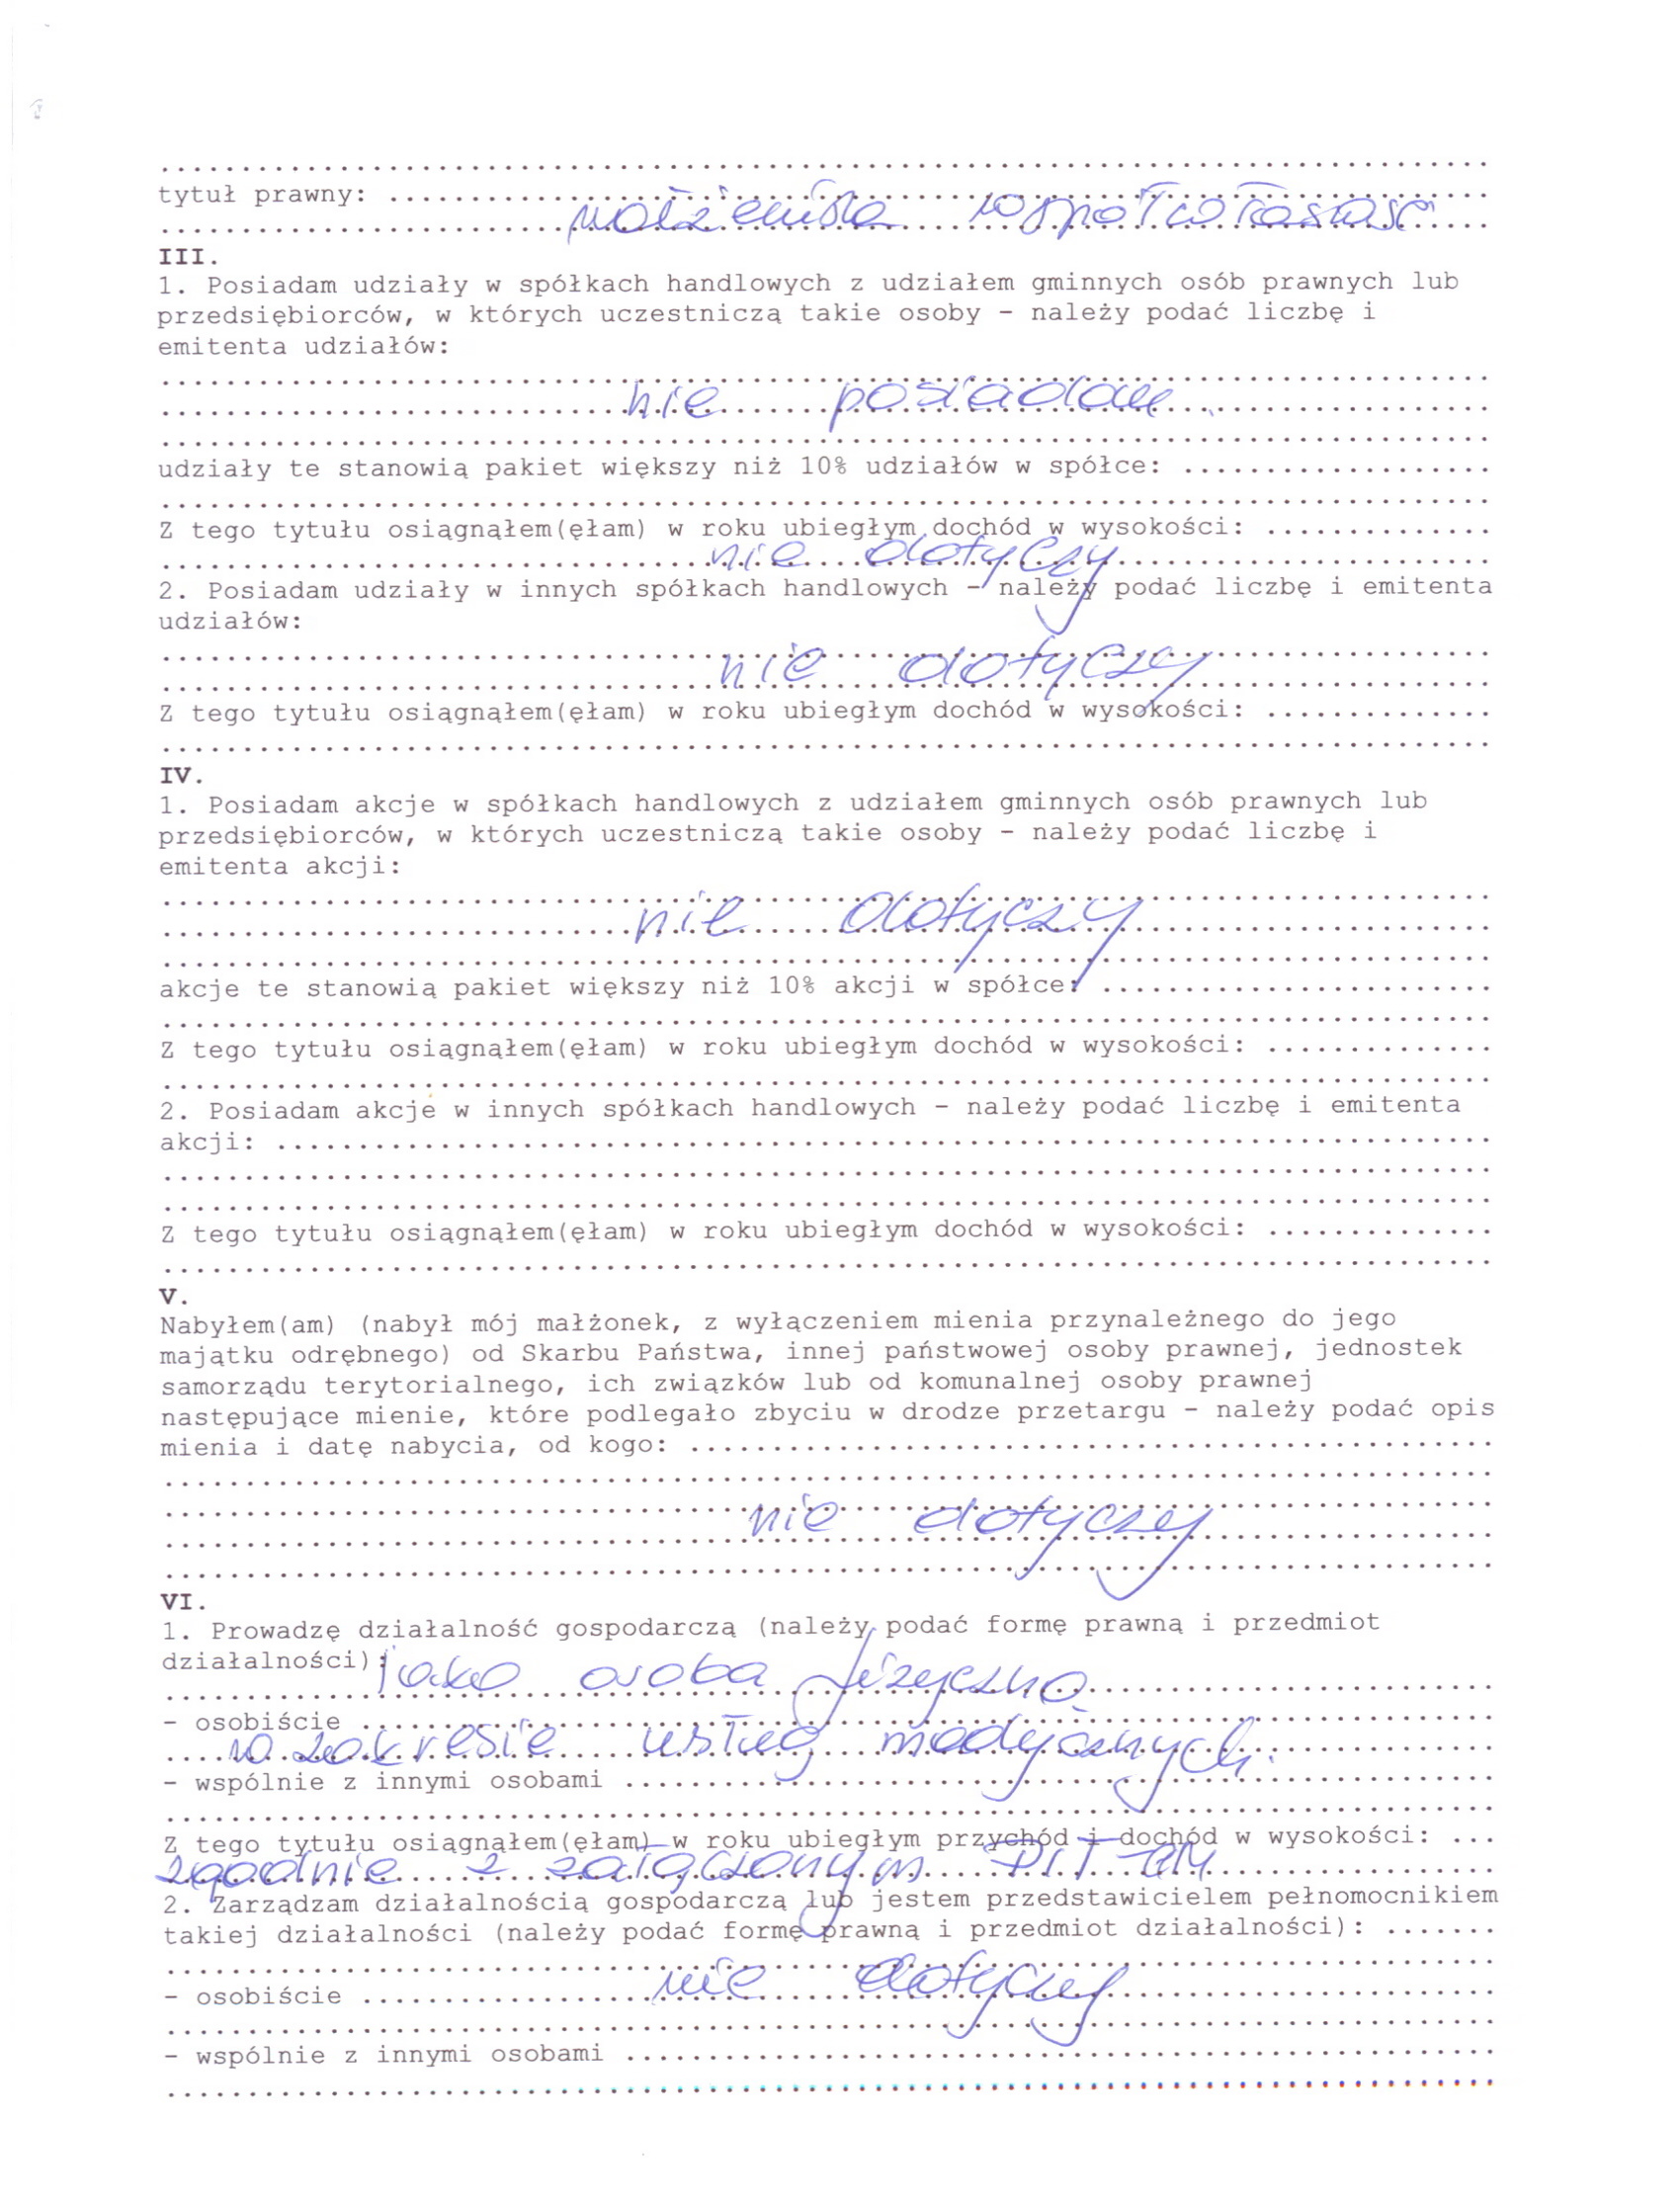 tytuł prawny:
małżeńska współwłasność
III.
1. Posiadam udziały w spółkach handlowych z udziałem gminnych osób prawnych lub
przedsiębiorców, w których uczestniczą takie osoby - należy podać liczbę i
emitenta udziałów:
nie posiadam
udziały te stanowią pakiet większy niż 10% udziałów w spółce:
Z tego tytułu osiągnąłem(ęłam) w roku ubiegłym dochód w wysokości:
nie dotyczy
2. Posiadam udziały w innych spółkach handlowych - należy podać liczbę i emitenta
udziałów:
nie dotyczy
Z tego tytułu osiągnąłem(ęłam) w roku ubiegłym dochód w wysokości:
IV.
1. Posiadam akcje w spółkach handlowych z udziałem gminnych osób prawnych lub
przedsiębiorców, w których uczestniczą takie osoby - należy podać liczbę i
emitenta akcji:
nie dotyczy
akcje te stanowią pakiet większy niż 10% akcji w spółce:
Z tego tytułu osiągnąłem(ęłam) w roku ubiegłym dochód w wysokości:
2. Posiadam akcje w innych spółkach handlowych - należy podać liczbę i emitenta
akcji:
Z tego tytułu osiągnąłem(ęłam) w roku ubiegłym dochód w wysokości:
V.
Nabyłem(am) (nabył mój małżonek, z wyłączeniem mienia przynależnego do jego
majątku odrębnego) od Skarbu Państwa, innej państwowej osoby prawnej, jednostek
samorządu terytorialnego, ich związków lub od komunalnej osoby prawnej
następujące mienie, które podlegało zbyciu w drodze przetargu - należy podać opis
mienia i datę nabycia, od kogo:
nie dotyczy
VI.
1. Prowadzę działalność gospodarczą (należy podać formę prawną i przedmiot
działalności): jako osoba fizyczna
- osobiście
w zakresie usług medycznych.
- wspólnie z innymi osobami
Z tego tytułu osiągnąłem(ęłam) w roku ubiegłym przychód i dochód w wysokości: ...
zgodnie z załączonym PIT-em
2. Zarządzam działalnością gospodarczą lub jestem przedstawicielem pełnomocnikiem
takiej działalności (należy podać formę prawną i przedmiot działalności):
nie dotyczy
- osobiście
- wspólnie z innymi osobami